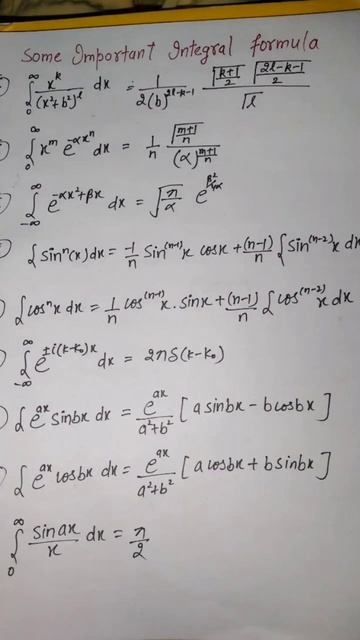 Some Important Integral formula
∫₀^∞ x^k/(x²+b²)^l dx = 1/(2(b)^(2l-k-1)) Γ((k+1)/2) Γ((2l-k-1)/2)/Γl
∫₀^∞ x^m e^(-αx^n) dx = 1/n Γ((m+1)/n)/(α)^((m+1)/n)
∫_-∞^∞ e^(-αx²+βx) dx = √(π/α) e^(β²/4α)
∫ sin^n(x) dx = -1/n Sin^(n-1) x cosx + (n-1)/n ∫ Sin^(n-2) x dx
∫ cos^n x dx = 1/n cos^(n-1) x . sinx + (n-1)/n ∫ cos^(n-2) x dx
∫_-∞^∞ e^(±i(k-k₀)x) dx = 2πδ(k-k₀)
∫ e^(ax) sinbx dx = e^(ax)/(a²+b²) [a sinbx - b cosbx]
∫ e^(ax) cosbx dx = e^(ax)/(a²+b²) [a cosbx + b sinbx]
∫₀^∞ sinax/x dx = π/2